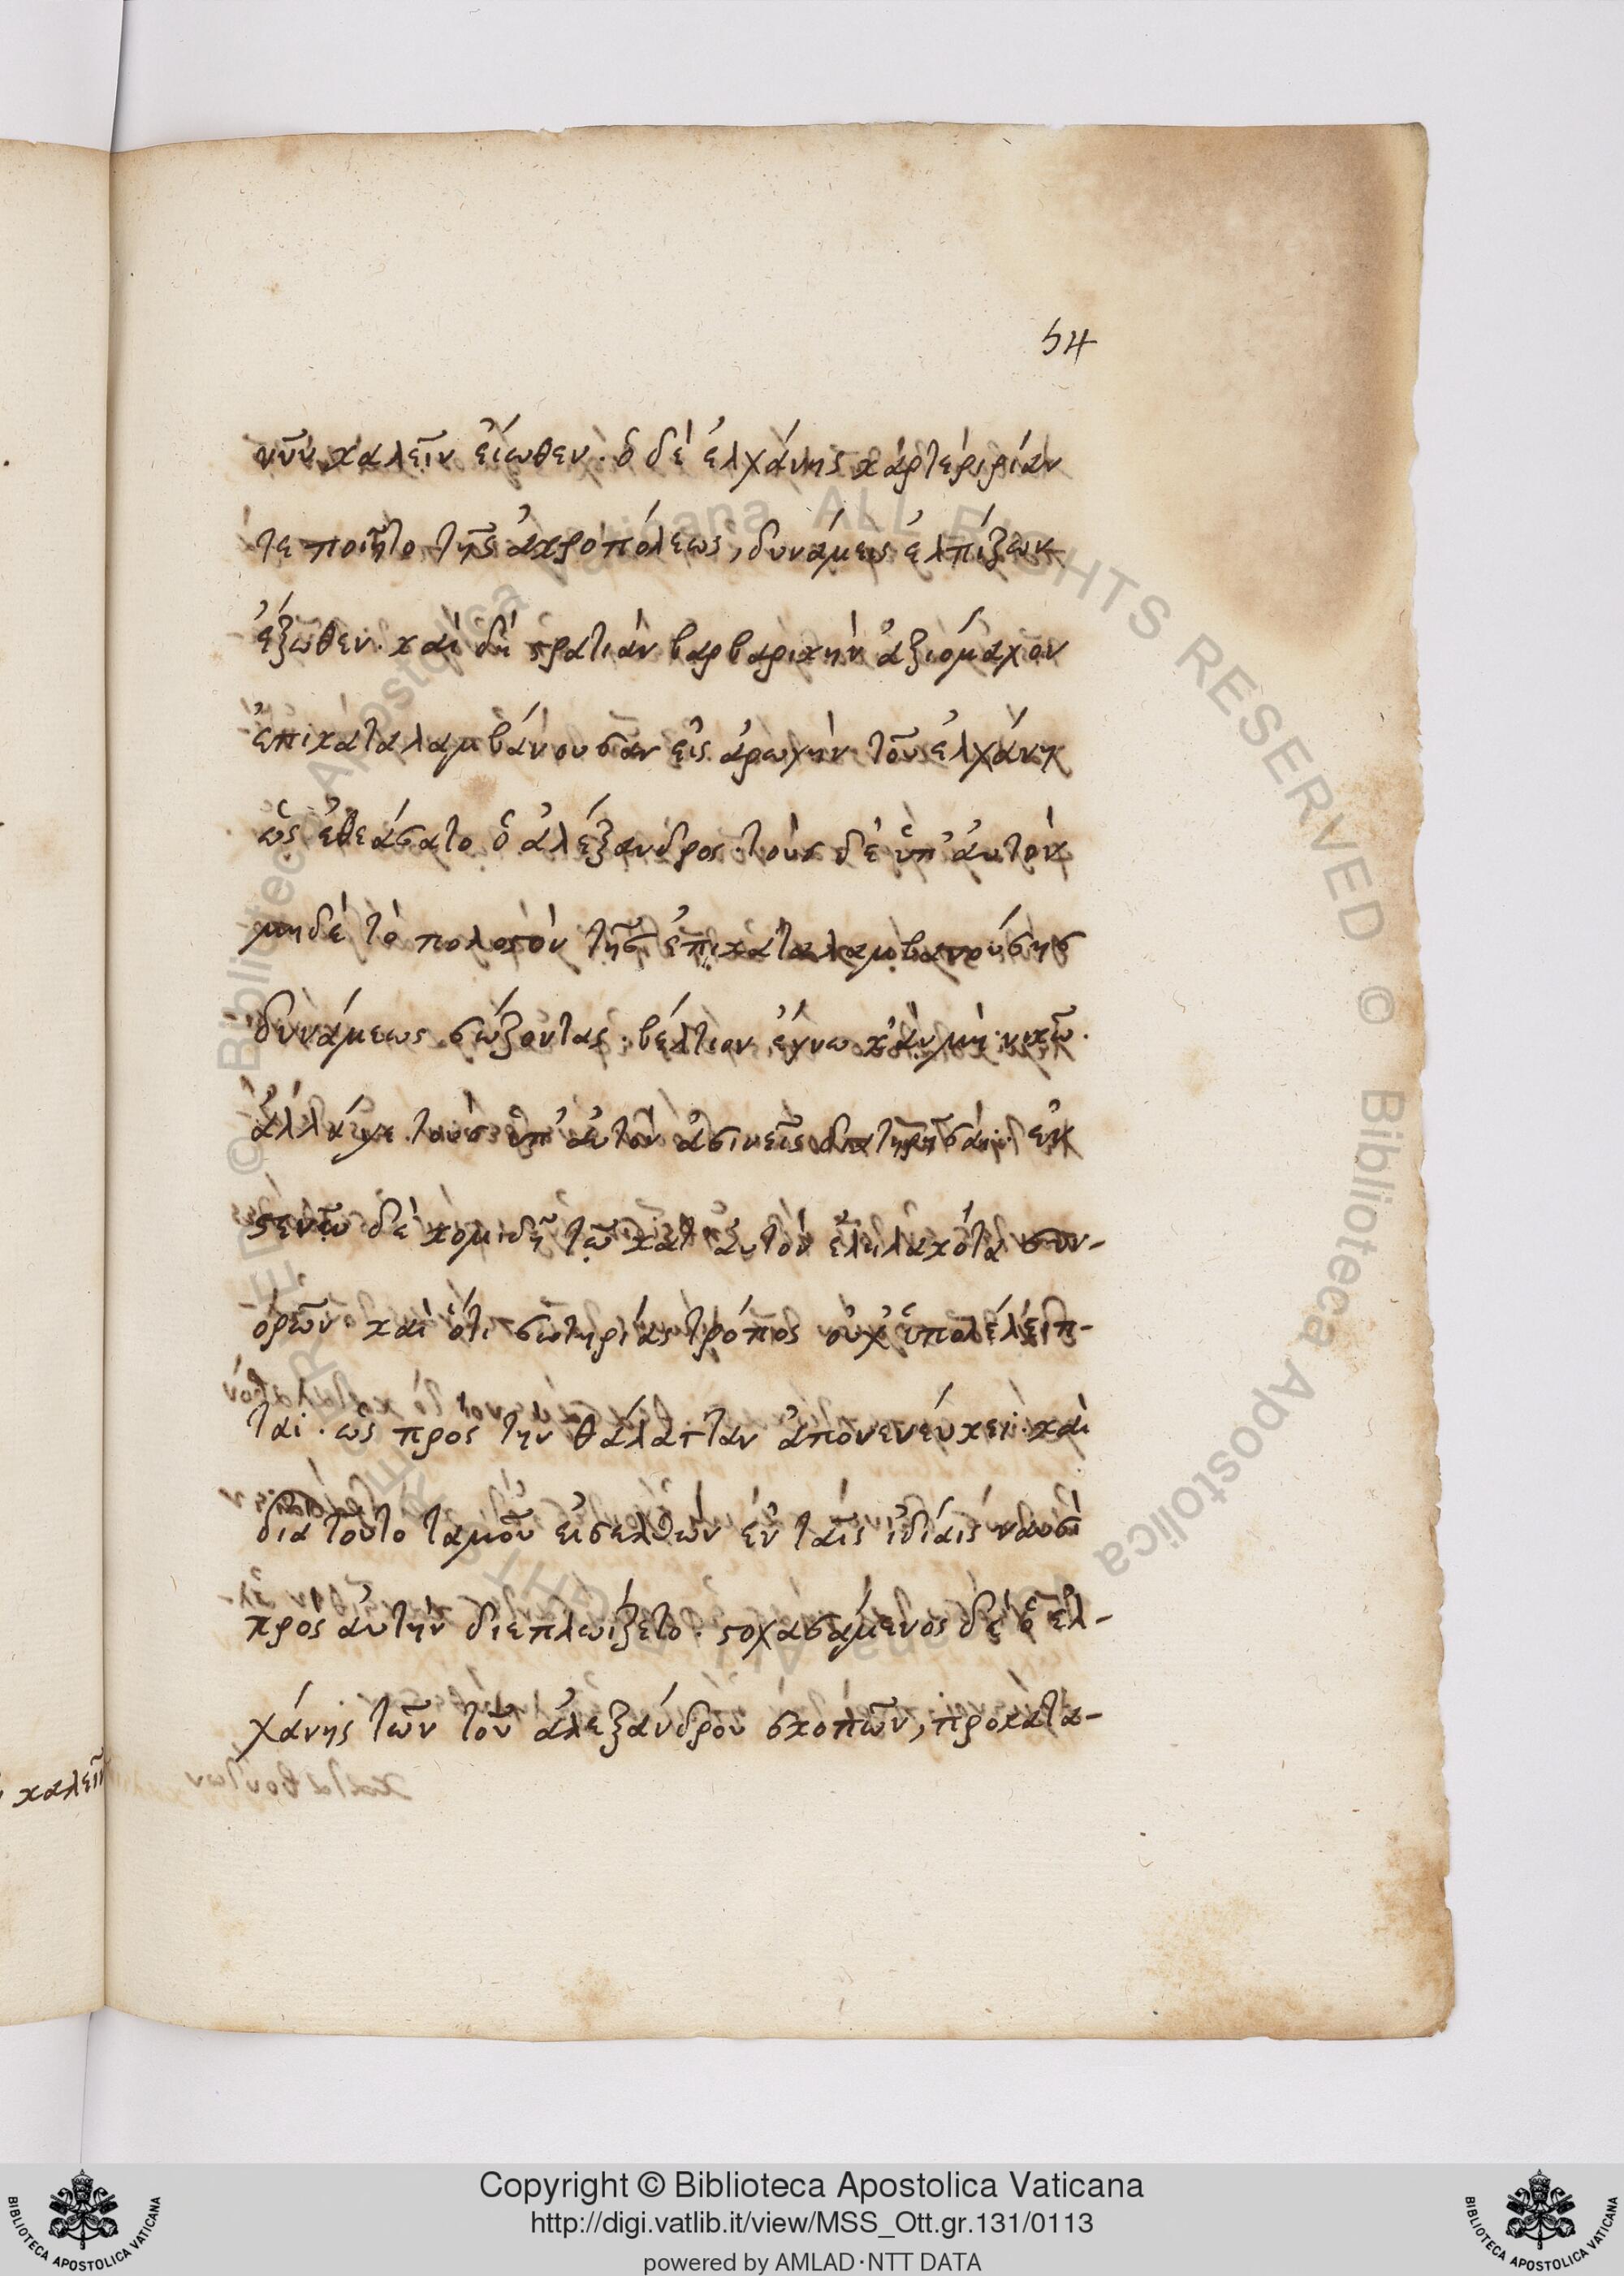 54
νῦν καλεῖν εἴωθεν. ὁ δὲ ἐλχάνης καρτεριρίαν
τε ποιῆτο τῆς ἀκροπόλεως, δυνάμεις ἐλπίζων
ἔξωθεν. καὶ δὴ στρατιὰν βαρβαρικὴν ἀξιόμαχον
ἐπικαταλαμβάνουσαν εἰς ἀρωγὴν τοῦ ἐλχάνη
ὡς ἐθεάσατο ὁ ἀλέξανδρος τοὺς δὲ ὑπ' αὐτὸν
μηδὲ τὸ πολοστὸν τῆς ἐπικαταλαμβανούσης
δυνάμεως σώζοντας. βέλτιον ἔγνω κἂν μὴ νικῶ.
ἀλλά γε τοὺς ὑπ' αὐτὸν ἀσινεῖς διατηρῆσαι. ἐν
στενῶ δὲ κομιδῆ τῶ κατ' αὐτὸν ἐληλακότα συν-
ορῶν καὶ ὅτι σωτηρίας τρόπος οὐχ' ὑπολέλειπ-
ται. ὡς πρὸς την θάλατταν ἀπονενεύκει. καὶ
δια τοῦτο ταμοῦ εἰσελθὼν ἐν ταῖς ἰδίαις ναυσὶ
πρὸς αὐτὴν διεπλωίζετο. στοχασάμενος δὲ ὁ ἐλ-
χάνης τῶν τοῦ ἀλεξάνδρου σκοπῶν, προκατα-
καλεῖν
Copyright © Biblioteca Apostolica Vaticana
http://digi.vatlib.it/view/MSS_Ott.gr.131/0113
powered by AMLAD·NTT DATA
BIBLIOTECA APOSTOLICA VATICANA
BIBLIOTECA APOSTOLICA VATICANA